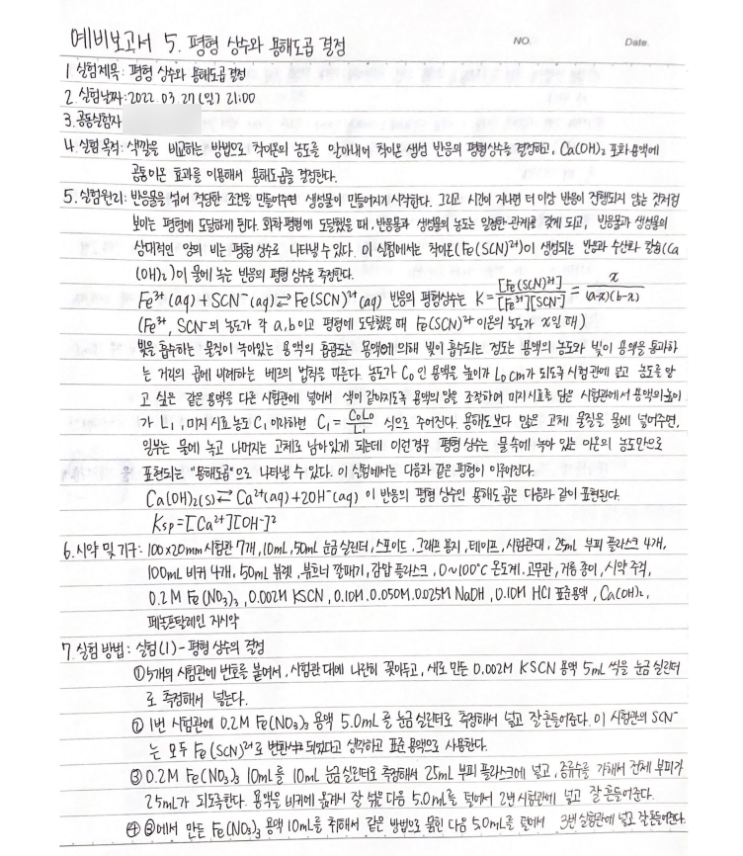 예비보고서 5. 평형 상수와 용해도곱 결정
NO.
Date.
1. 실험제목: 평형 상수와 용해도곱 결정
2. 실험날짜: 2022. 03. 27 (일) 21:00
3. 공동실험자
4. 실험 목적: 색깔을 비교하는 방법으로 착이온의 농도를 알아내어 착이온 생성 반응의 평형상수를 결정하고, Ca(OH)₂ 포화용액에
공통이온 효과를 이용해서 용해도곱을 결정한다.
5. 실험원리: 반응물을 섞어 적당한 조건을 만들어주면 생성물이 만들어지기 시작한다. 그리고 시간이 지나면 더 이상 반응이 진행되지 않는 것처럼
보이는 평형에 도달하게 된다. 화학 평형에 도달했을 때, 반응물과 생성물의 농도는 일정한 관계를 갖게 되고, 반응물과 생성물의
상대적인 양의 비는 평형 상수로 나타낼 수 있다. 이 실험에서는 착이온(Fe(SCN)²⁺)이 생성되는 반응과 수산화 칼슘(Ca
(OH)₂)이 물에 녹는 반응의 평형 상수를 측정한다.
Fe³⁺(aq) + SCN⁻(aq) ⇄ Fe(SCN)²⁺(aq) 반응의 평형상수는 K = [Fe(SCN)²⁺] / [Fe³⁺][SCN⁻] = x / (a-x)(b-x)
(Fe³⁺, SCN⁻의 농도가 각 a, b이고 평형에 도달했을 때 Fe(SCN)²⁺ 이온의 농도가 x일 때)
빛을 흡수하는 물질이 녹아있는 용액의 흡광도는 용액에 의해 빛이 흡수되는 정도는 용액의 농도와 빛이 용액을 통과하
는 거리의 곱에 비례하는 베르의 법칙을 따른다. 농도가 C₀인 용액을 높이가 L₀ cm가 되도록 시험관에 넣고 농도를 알
고 싶은 같은 용액을 다른 시험관에 넣어서 색이 같아지도록 용액의 양을 조절하여 미지시료를 담은 시험관에서 용액의 높이
가 L₁, 미지 시료 농도 C₁이라하면 C₁ = C₀L₀ / L₁ 식으로 주어진다. 용해도보다 많은 고체 물질을 물에 넣어주면,
일부는 물에 녹고 나머지는 고체로 남아있게 되는데 이런 경우 평형 상수는 물 속에 녹아 있는 이온의 농도만으로
표현되는 "용해도곱"으로 나타낼 수 있다. 이 실험에서는 다음과 같은 평형이 이루어진다.
Ca(OH)₂(s) ⇄ Ca²⁺(aq) + 2OH⁻(aq) 이 반응의 평형 상수인 용해도곱은 다음과 같이 표현된다.
Ksp = [Ca²⁺][OH⁻]²
6. 시약 및 기구: 100×20mm 시험관 7개, 10mL, 50mL 눈금 실린더, 스포이드, 그래프 용지, 테이프, 시험관대, 25mL 부피 플라스크 4개,
100mL 비커 4개, 50mL 뷰렛, 뷰흐너 깔때기, 감압 플라스크, 0~100℃ 온도계, 고무관, 거름 종이, 시약 주걱,
0.2M Fe(NO₃)₃, 0.002M KSCN, 0.10M, 0.050M, 0.025M NaOH, 0.10M HCl 표준용액, Ca(OH)₂,
페놀프탈레인 지시약
7. 실험 방법: 실험(1) - 평형 상수의 측정
① 5개의 시험관에 번호를 붙여서, 시험관 대에 나란히 꽂아두고, 새로 만든 0.002M KSCN 용액 5mL 씩을 눈금 실린더
로 측정해서 넣는다.
② 1번 시험관에 0.2M Fe(NO₃)₃ 용액 5.0mL를 눈금실린더로 측정해서 넣고 잘 흔들어준다. 이 시험관의 SCN⁻
는 모두 Fe(SCN)²⁺로 변환 되었다고 생각하고 표준 용액으로 사용한다.
③ 0.2M Fe(NO₃)₃ 10mL를 10mL 눈금실린더로 측정해서 25mL 부피 플라스크에 넣고, 증류수를 가해서 전체 부피가
25mL가 되도록한다. 용액을 비커에 옮겨서 잘 섞은 다음 5.0mL를 덜어서 2번 시험관에 넣고 잘 흔들어준다.
④ ③에서 만든 Fe(NO₃)₃ 용액 10mL를 취해서 같은 방법으로 묽힌 다음 5.0mL를 덜어서 3번 실험관에 넣고 잘 흔들어준다.